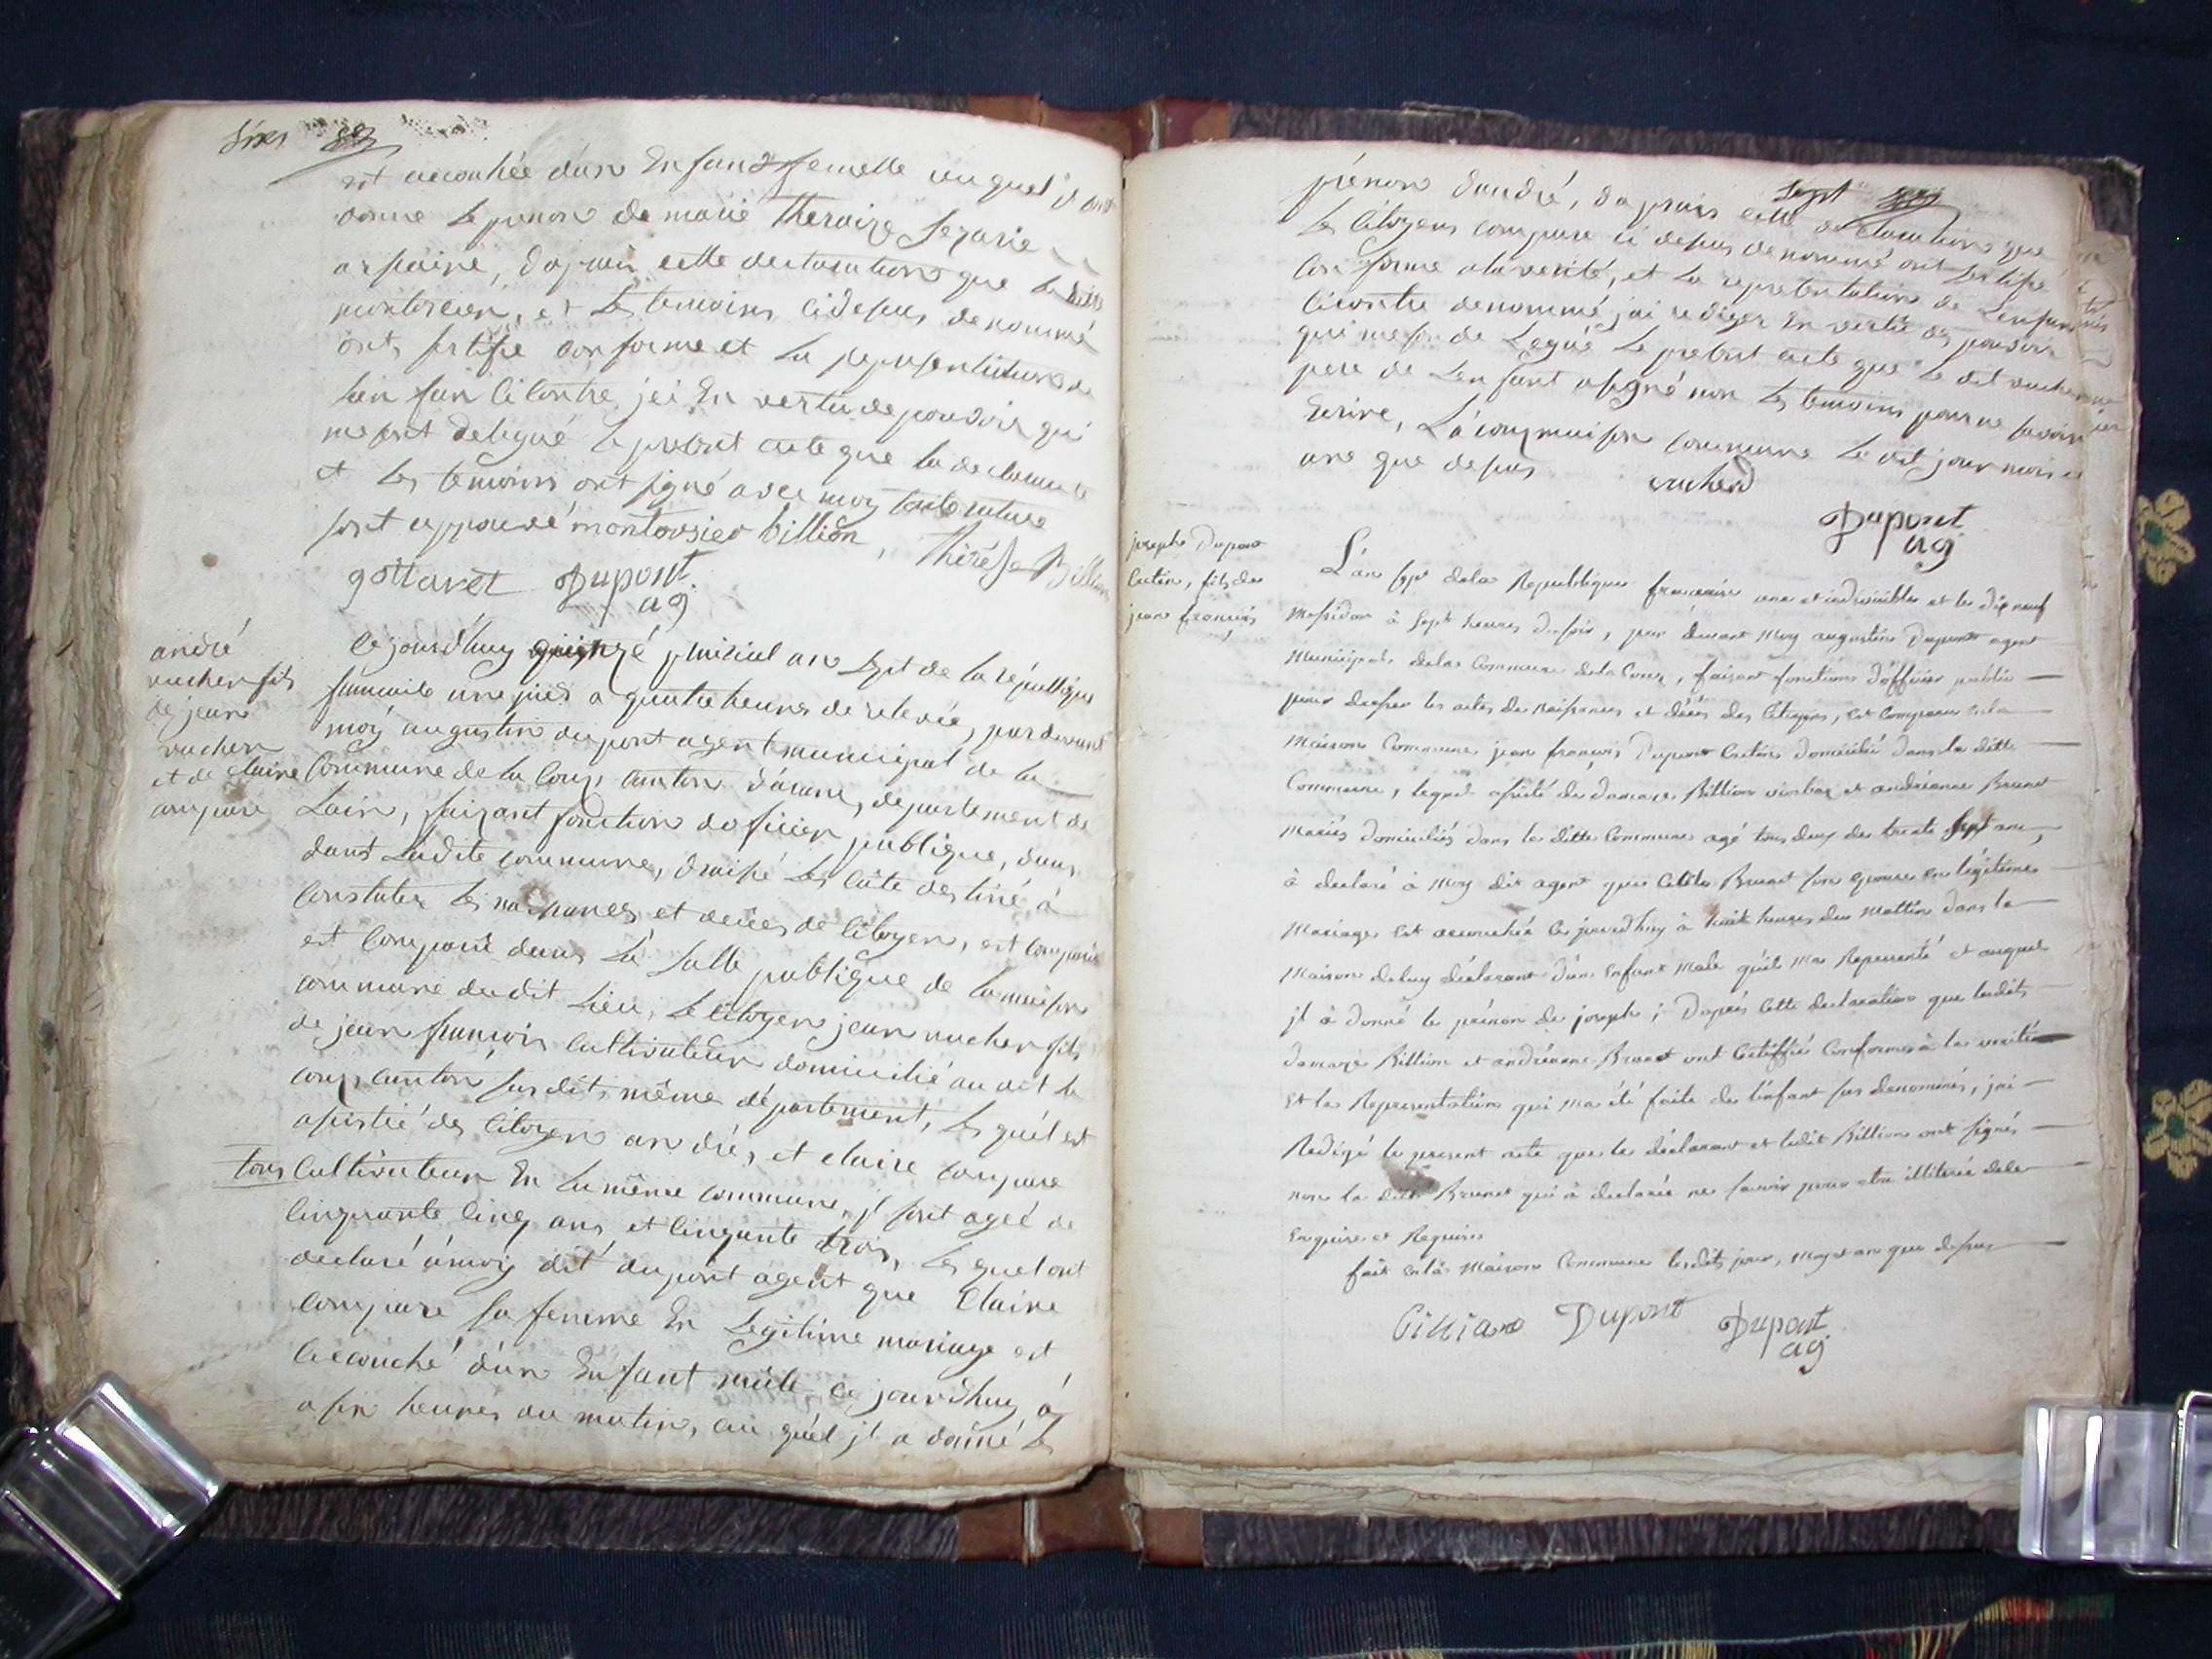 Six
est accouchée d'un Enfant femelle auquel il ont
donné le prenom de marie theraize
, dapres cette declaration que la ditte
montoscier, et les temoins cidessus denommé
ont sertifié conforme et la representation de
lenfan cicontre jei En vertu de pouvoir qui
me sont delegué le presest acte que la declarante
et les temoins ont signé avec moy
sont approuvé montovsier billion, Thérèse Billion
gottaret Dupont
ag
andré
vucher fils
de jean
vucher
et de claire
conpare
Cejourd'huy quinzé prairial an sept de la république
francaise une a quatre heures de relevée, pardevant
moy augustin dupont agent municipal de la
Commune de la Coux canton d'arane, département de
Lain, faizant fonction doficier publique, dans
dans Ladite commune, les acte destiné à
constater les naissances et decées de citoyen, est comparu
est comparu dans la salle publique de la maison
commune dudit Lieu, le citoyen jean vucher fils
de jean françois cultivateur domicilié au dit la
coux canton susdit, même département, lequél est
asistié des citoyen andré, et claire conpare
tous cultivateur En la même commune, jl sont ageé de
cinquante cinq ans et cinquante trois, les quel ont
declaré à moy dit dupont agent que Claire
conpare sa femme En Legitime mariage est
accouché d'un Enfant mâle ce jourd'huy à
a six heures du matin, au quél jl a donné le
Sept
prénom dandré, dapres cette declaration que
les citoyens conpare ci dessus denommé ont sertifié
conforme a la verité, et la representation de Lenfant
cicontre denommé jai rediger En vertu des pouvoir
qui me son delegué le presest acte que le dit vucher
pere de Lenfant a signé non les temoins pour ne savoir
Ecrire, La coux maison commune le dit jour mois et
ans que dessus
vucherd
Dupont
ag
joseph Dupont
Cretin, fils de
jean françois
L'an sept de la Republique francaise une et indivisible et le dix neuf
Messidor à sept heures du soir, par devant Moy augustin Dupont agent
Municipal de la Commune de la Coux, faisant fonctions d'officier public
pour dresser les actes de naissances et décés des Citoyens, est comparu en la
Maison Commune jean françois Dupont Cretin domicilié dans la ditte
Commune, lequel assisté de damaze Billion et andréanne Brunet
Mariés domiciliés dans la ditte Commune agé tous deux de trente sept ans,
à declaré à Moy dit agent que Brunet son epouse en legitime
Mariage est accouchée ce jourdhuy à huit heures du Mattin dans la
Maison de luy déclarant d'un enfant Male qu'il ma Representé et auquel
jl à donné le prénom de joseph ; D'aprés cette declaration que lesdits
damaze Billion et andréanne Brunet ont Certiffié Conforme à la verité
et la Representation qui ma été faite de l'enfant sus denommé, jai
Redigé le present acte que le déclarant et ledit Billion ont signés
non la ditte Brunet qui à declaré ne savoir pour etre illiterée de ce
Enquise et Requise
fait en la Maison Commune lesdits jour, Moys et an que dessus
Billiano Dupont Dupont
ag